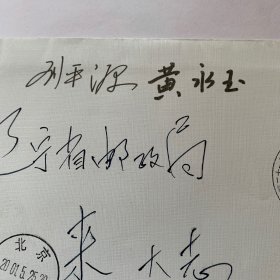 刘平源 黄永玉
辽宁省邮政局
来大志
北京
2001.5.25.20